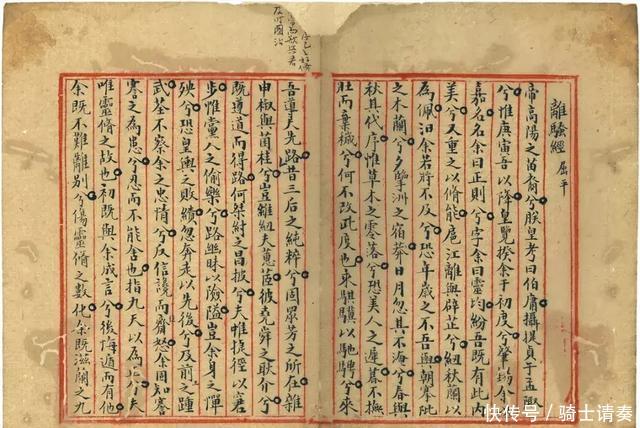 離騷經 屈平
帝高陽之苗裔兮朕皇考曰伯庸攝提貞于孟陬
兮惟庚寅吾以降皇覽揆余于初度兮肇錫余
嘉名名余曰正則兮字余曰靈均紛吾既有此內
美兮又重之以脩能扈江離與辟芷兮紉秋蘭以
為佩汩余若將不及兮恐年歲之不吾與朝搴阰
之木蘭兮夕擥洲之宿莽日月忽其不淹兮春與
秋其代序惟草木之零落兮恐美人之遲暮不撫
壯而棄穢兮何不改此度也乘騏驥以馳騁兮來
吾導夫先路昔三后之純粹兮固眾芳之所在雜
申椒與菌桂兮豈維紉夫蕙茝彼堯舜之耿介兮
既遵道而得路何桀紂之昌披兮夫惟捷徑以窘
步惟黨人之偷樂兮路幽昧以險隘豈余身之憚
殃兮恐皇輿之敗績忽奔走以先後兮及前之踵
武荃不察余之忠情兮反信讒而齌怒余固知謇
謇之為患兮忍而不能舍也指九天以為正兮夫
唯靈脩之故也初既與余成言兮後悔遁而有他
余既不難離別兮傷靈脩之數化余既滋蘭之九
快传号／骑士请奏